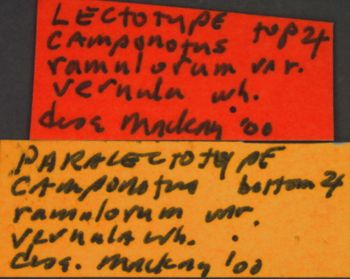 LECTOTYPE
Camponotus top ♀
ramulorum var.
vernula wh.
desg. Mackay '00
PARALECTOTYPE
Camponotus bottom ♀
ramulorum var.
vernula wh.
desg. Mackay '00